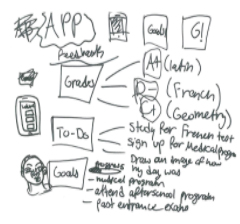 APP
Goals
G!
Feedback
Grades
A+ (Latin)
D- (French)
(Geometry)
To-Dos
Study for French test
Sign up for Medical program
Goals
Draw an image of how
my day was
- medical program
- attend afterschool program
- past entrance exams